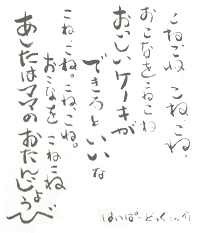 こねこね こねこね。
おこなをこねこね
おいしいケーキが
できるといいな
こねこね。こねこね。
おこなを こねこね
あしたはママの おたんじょうび